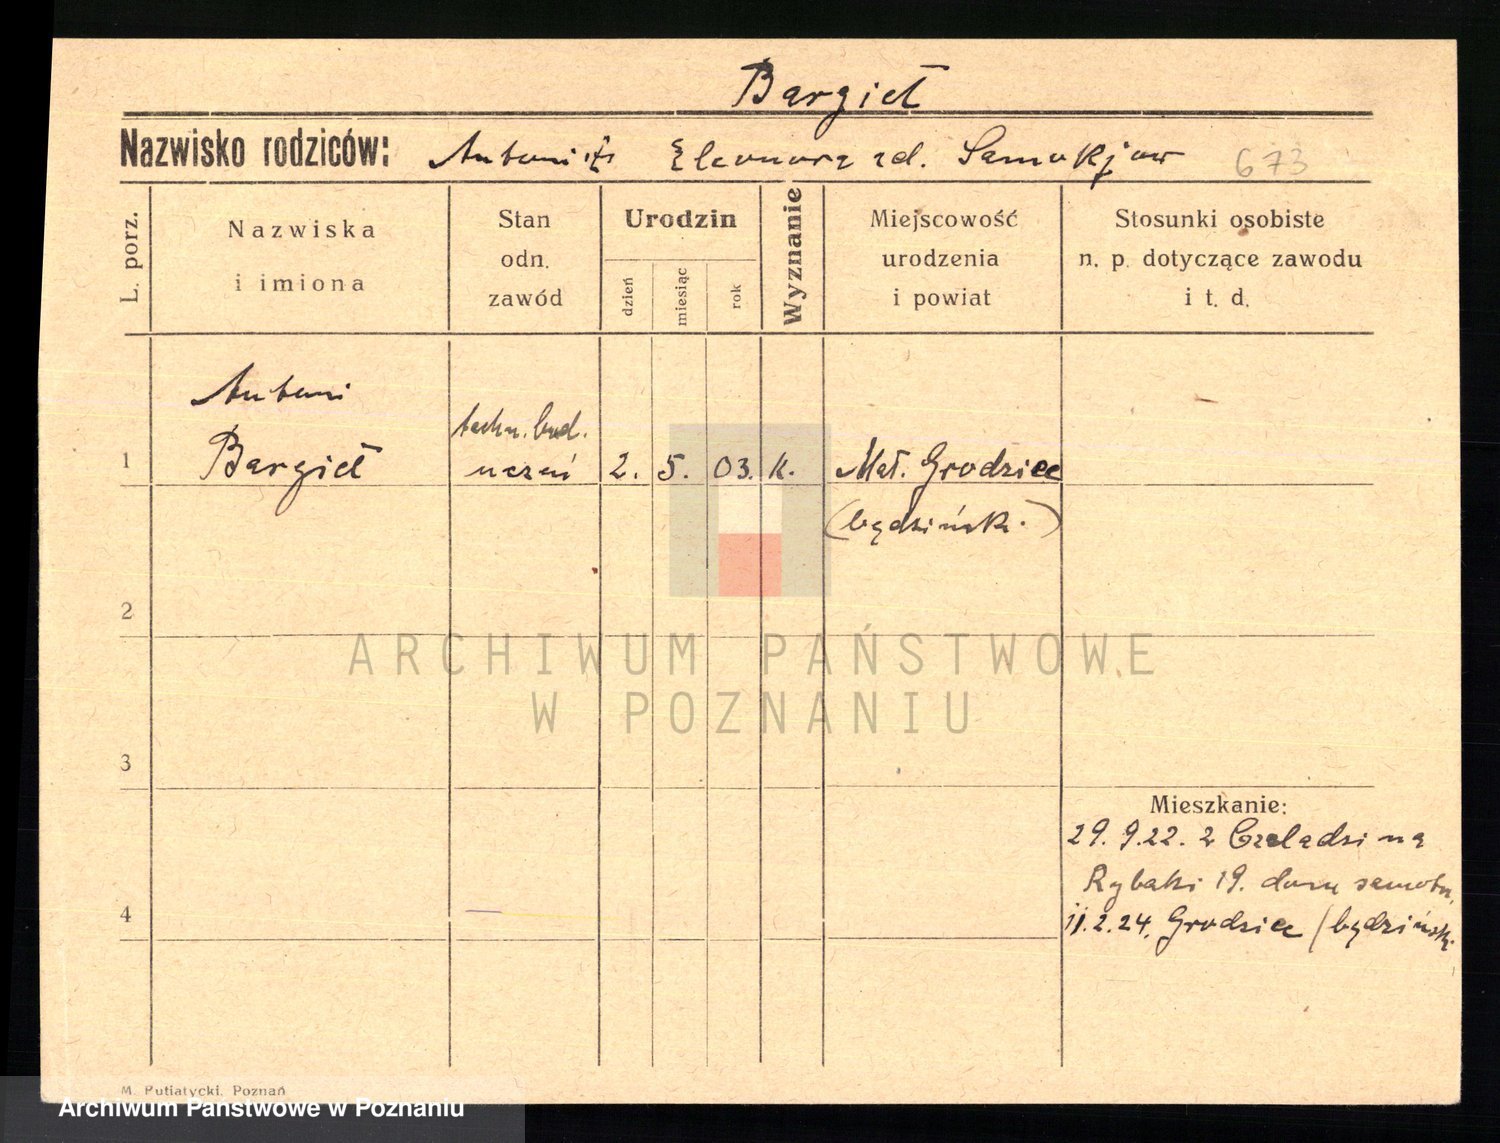 Bargieł
Nazwisko rodziców: Antoni Eleonora zd. 673
L. porz.
Nazwiska
i imiona
Stan
odn.
zawód
Urodzin
dzień
miesiąc
rok
Wyznanie
Miejscowość
urodzenia
i powiat
Stosunki osobiste
n. p. dotyczące zawodu
i t. d.
Antoni
techn. bud.
1 Bargieł uczeń 2. 5. 03. k. Mał. Grodziec
(będzińsk.)
2
ARCHIWUM PAŃSTWOWE
W POZNANIU
3
Mieszkanie:
29. 9.22. z Czeladzi na
Rybaki 19. dom samotn.
4 11.2.24. Grodziec / będziński
M. Putiatycki. Poznań
Archiwum Państwowe w Poznaniu